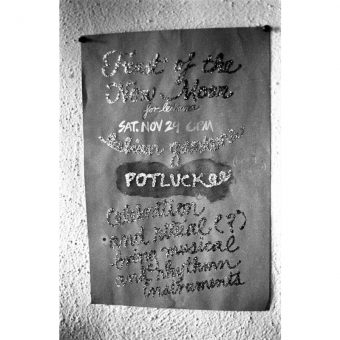 Feast of the
New Moon
for lesbians
SAT. NOV 24 6PM
Lesbian gardens
a
POTLUCK
Celebration
and ritual (?)
bring musical
and rhythm
instruments